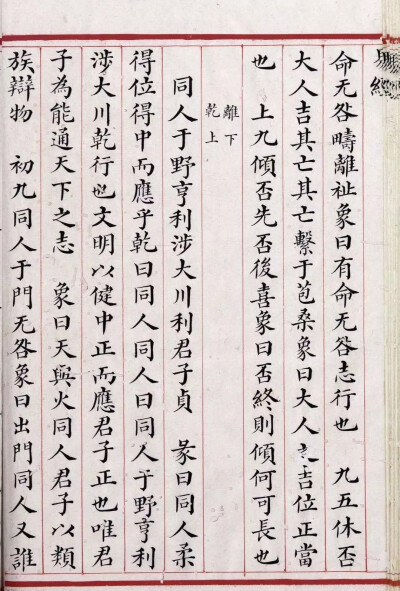 易經
命无咎疇離祉象曰有命无咎志行也　九五休否
大人吉其亡其亡繫于苞桑象曰大人之吉位正當
也　上九傾否先否後喜象曰否終則傾何可長也
離下
乾上
同人于野亨利涉大川利君子貞　彖曰同人柔
得位得中而應乎乾曰同人同人曰同人于野亨利
涉大川乾行也文明以健中正而應君子正也唯君
子為能通天下之志　象曰天與火同人君子以類
族辯物　初九同人于門无咎象曰出門同人又誰